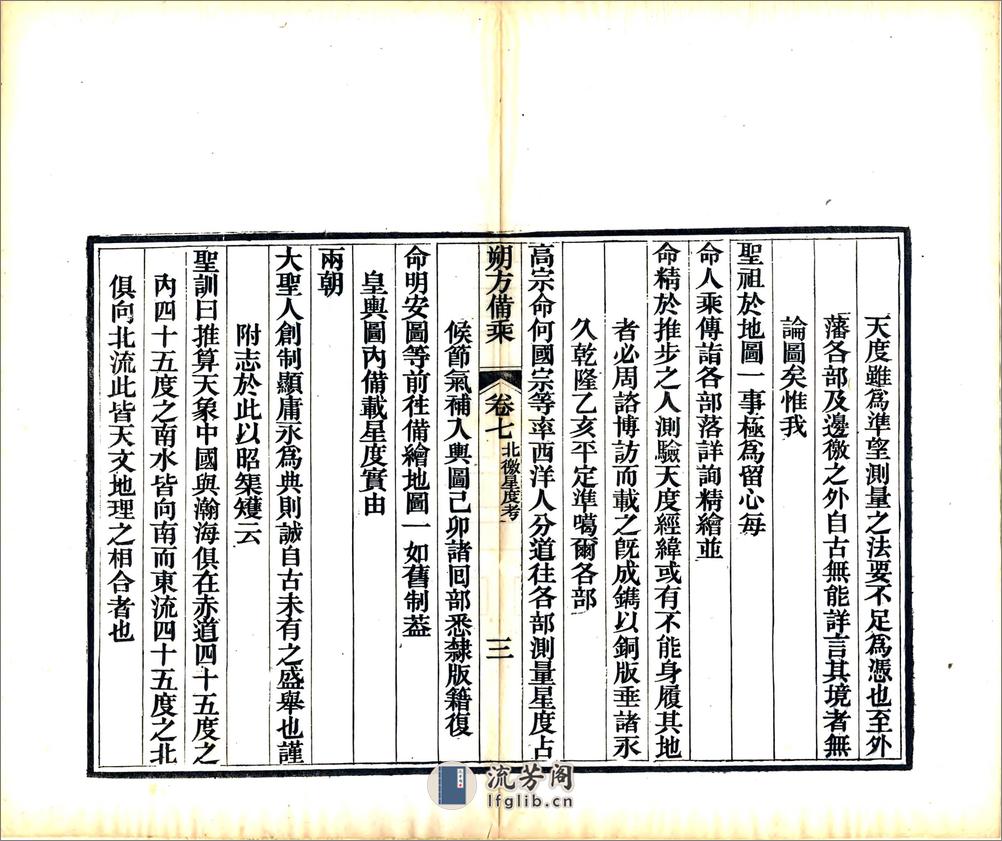 天度雖爲準望測量之法要不足爲憑也至外
藩各部及邊徼之外自古無能詳言其境者無
論圖矣惟我
聖祖於地圖一事極爲留心每
命人乘傳詣各部落詳詢精繪並
命精於推步之人測驗天度經緯或有不能身履其地
者必周諮博訪而載之旣成鐫以銅版垂諸永
久乾隆乙亥平定準噶爾各部
高宗命何國宗等率西洋人分道往各部測量星度占
朔方備乘 卷七 北徼星度考 三
候節氣補入輿圖己卯諸回部悉隸版籍復
命明安圖等前往備繪地圖一如舊制葢
皇輿圖內備載星度實由
兩朝
大聖人創制顯庸永爲典則誠自古未有之盛舉也謹
附志於此以昭榘矱云
聖訓曰推算天象中國與瀚海俱在赤道四十五度之
內四十五度之南水皆向南而東流四十五度之北
俱向北流此皆天文地理之相合者也
流芳阁
lfglib.cn